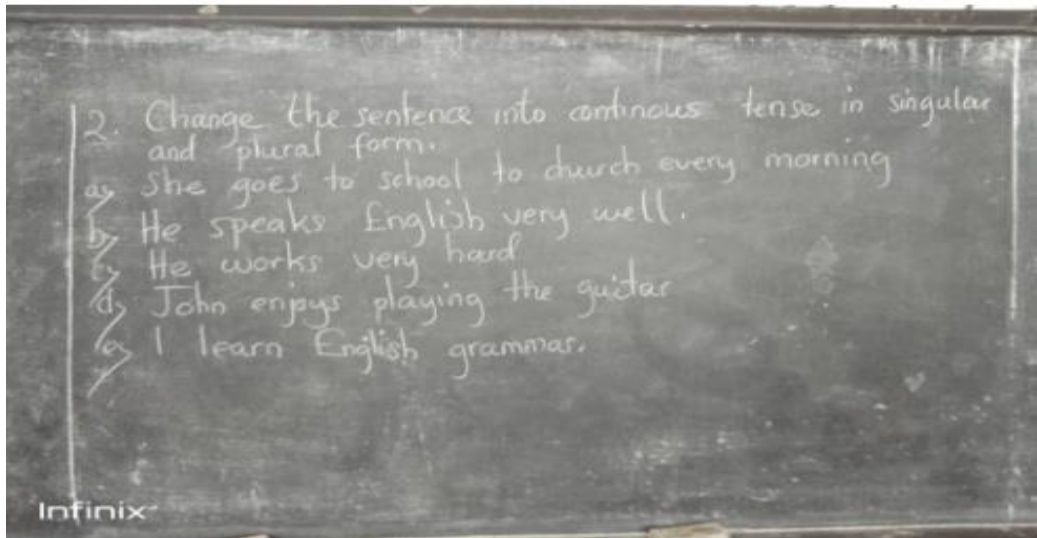 2. Change the sentence into continous tense in singular
and plural form.
a, She goes to school to church every morning
b, He speaks English very well.
c, He works very hard
d, John enjoys playing the guitar
e, I learn English grammar.
Infinix